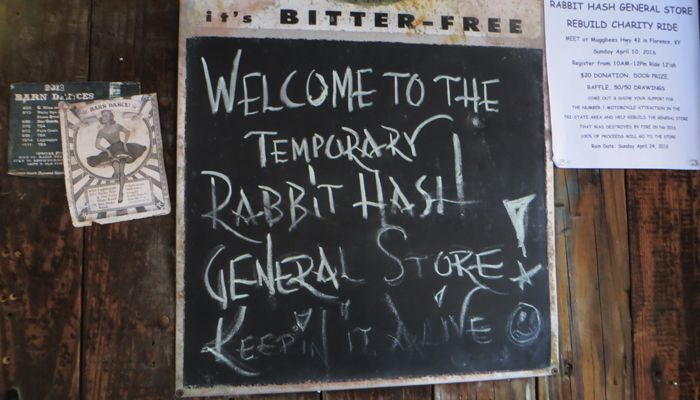 it's BITTER-FREE
WELCOME TO THE
TEMPORARY
RABBIT HASH
GENERAL STORE
KEEPIN IT ALIVE
RABBIT HASH GENERAL STORE
REBUILD CHARITY RIDE
MEET at Mugghees Hwy 42 in Florence, KY
Sunday April 10, 2016
Register from 10AM-12Pm Ride 12'ish
$20 DONATION, DOOR PRIZE,
RAFFLE, 50/50 DRAWINGS
COME OUT & SHOW YOUR SUPPORT FOR
THE NUMBER 1 MOTORCYCLE ATTRACTION IN THE
TRI-STATE AREA AND HELP REBUILD THE GENERAL STORE
THAT WAS DESTROYED BY FIRE ON FEB 2016
100% OF PROCEEDS WILL GO TO THE STORE
Rain Date: Sunday April 24, 2016
BARN DANCES
BARN DANCE!